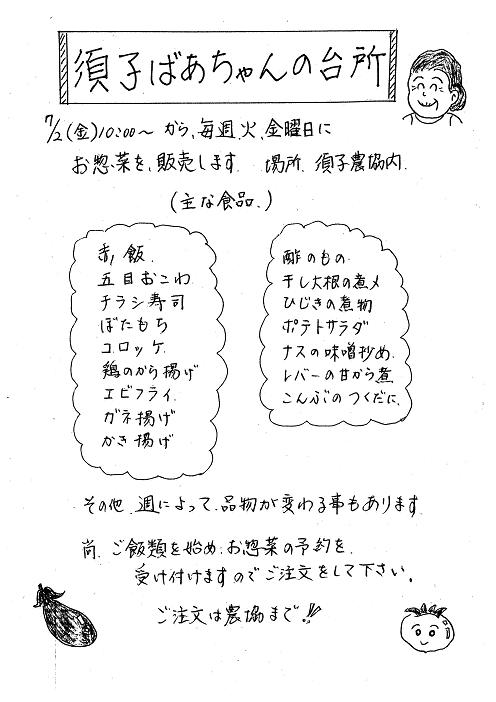 須子ばあちゃんの台所
7/2(金)10:00～ から、毎週、火、金曜日に
お惣菜を、販売します。 場所 須子農協内
(主な食品、)
赤飯
五目おこわ
チラシ寿司
ぼたもち
コロッケ
鶏のから揚げ
エビフライ
ガネ揚げ
かき揚げ
酢のもの
干し大根の煮〆
ひじきの煮物
ポテトサラダ
ナスの味噌炒め
レバーの甘から煮
こんぶのつくだに
その他 週によって、品物が変わる事もあります
尚、ご飯類を始め、お惣菜の予約を、
受け付けますのでご注文をして下さい。
ご注文は農協まで!!